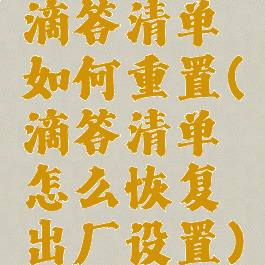 滴答清单
如何重置(
滴答清单
怎么恢复
出厂设置)